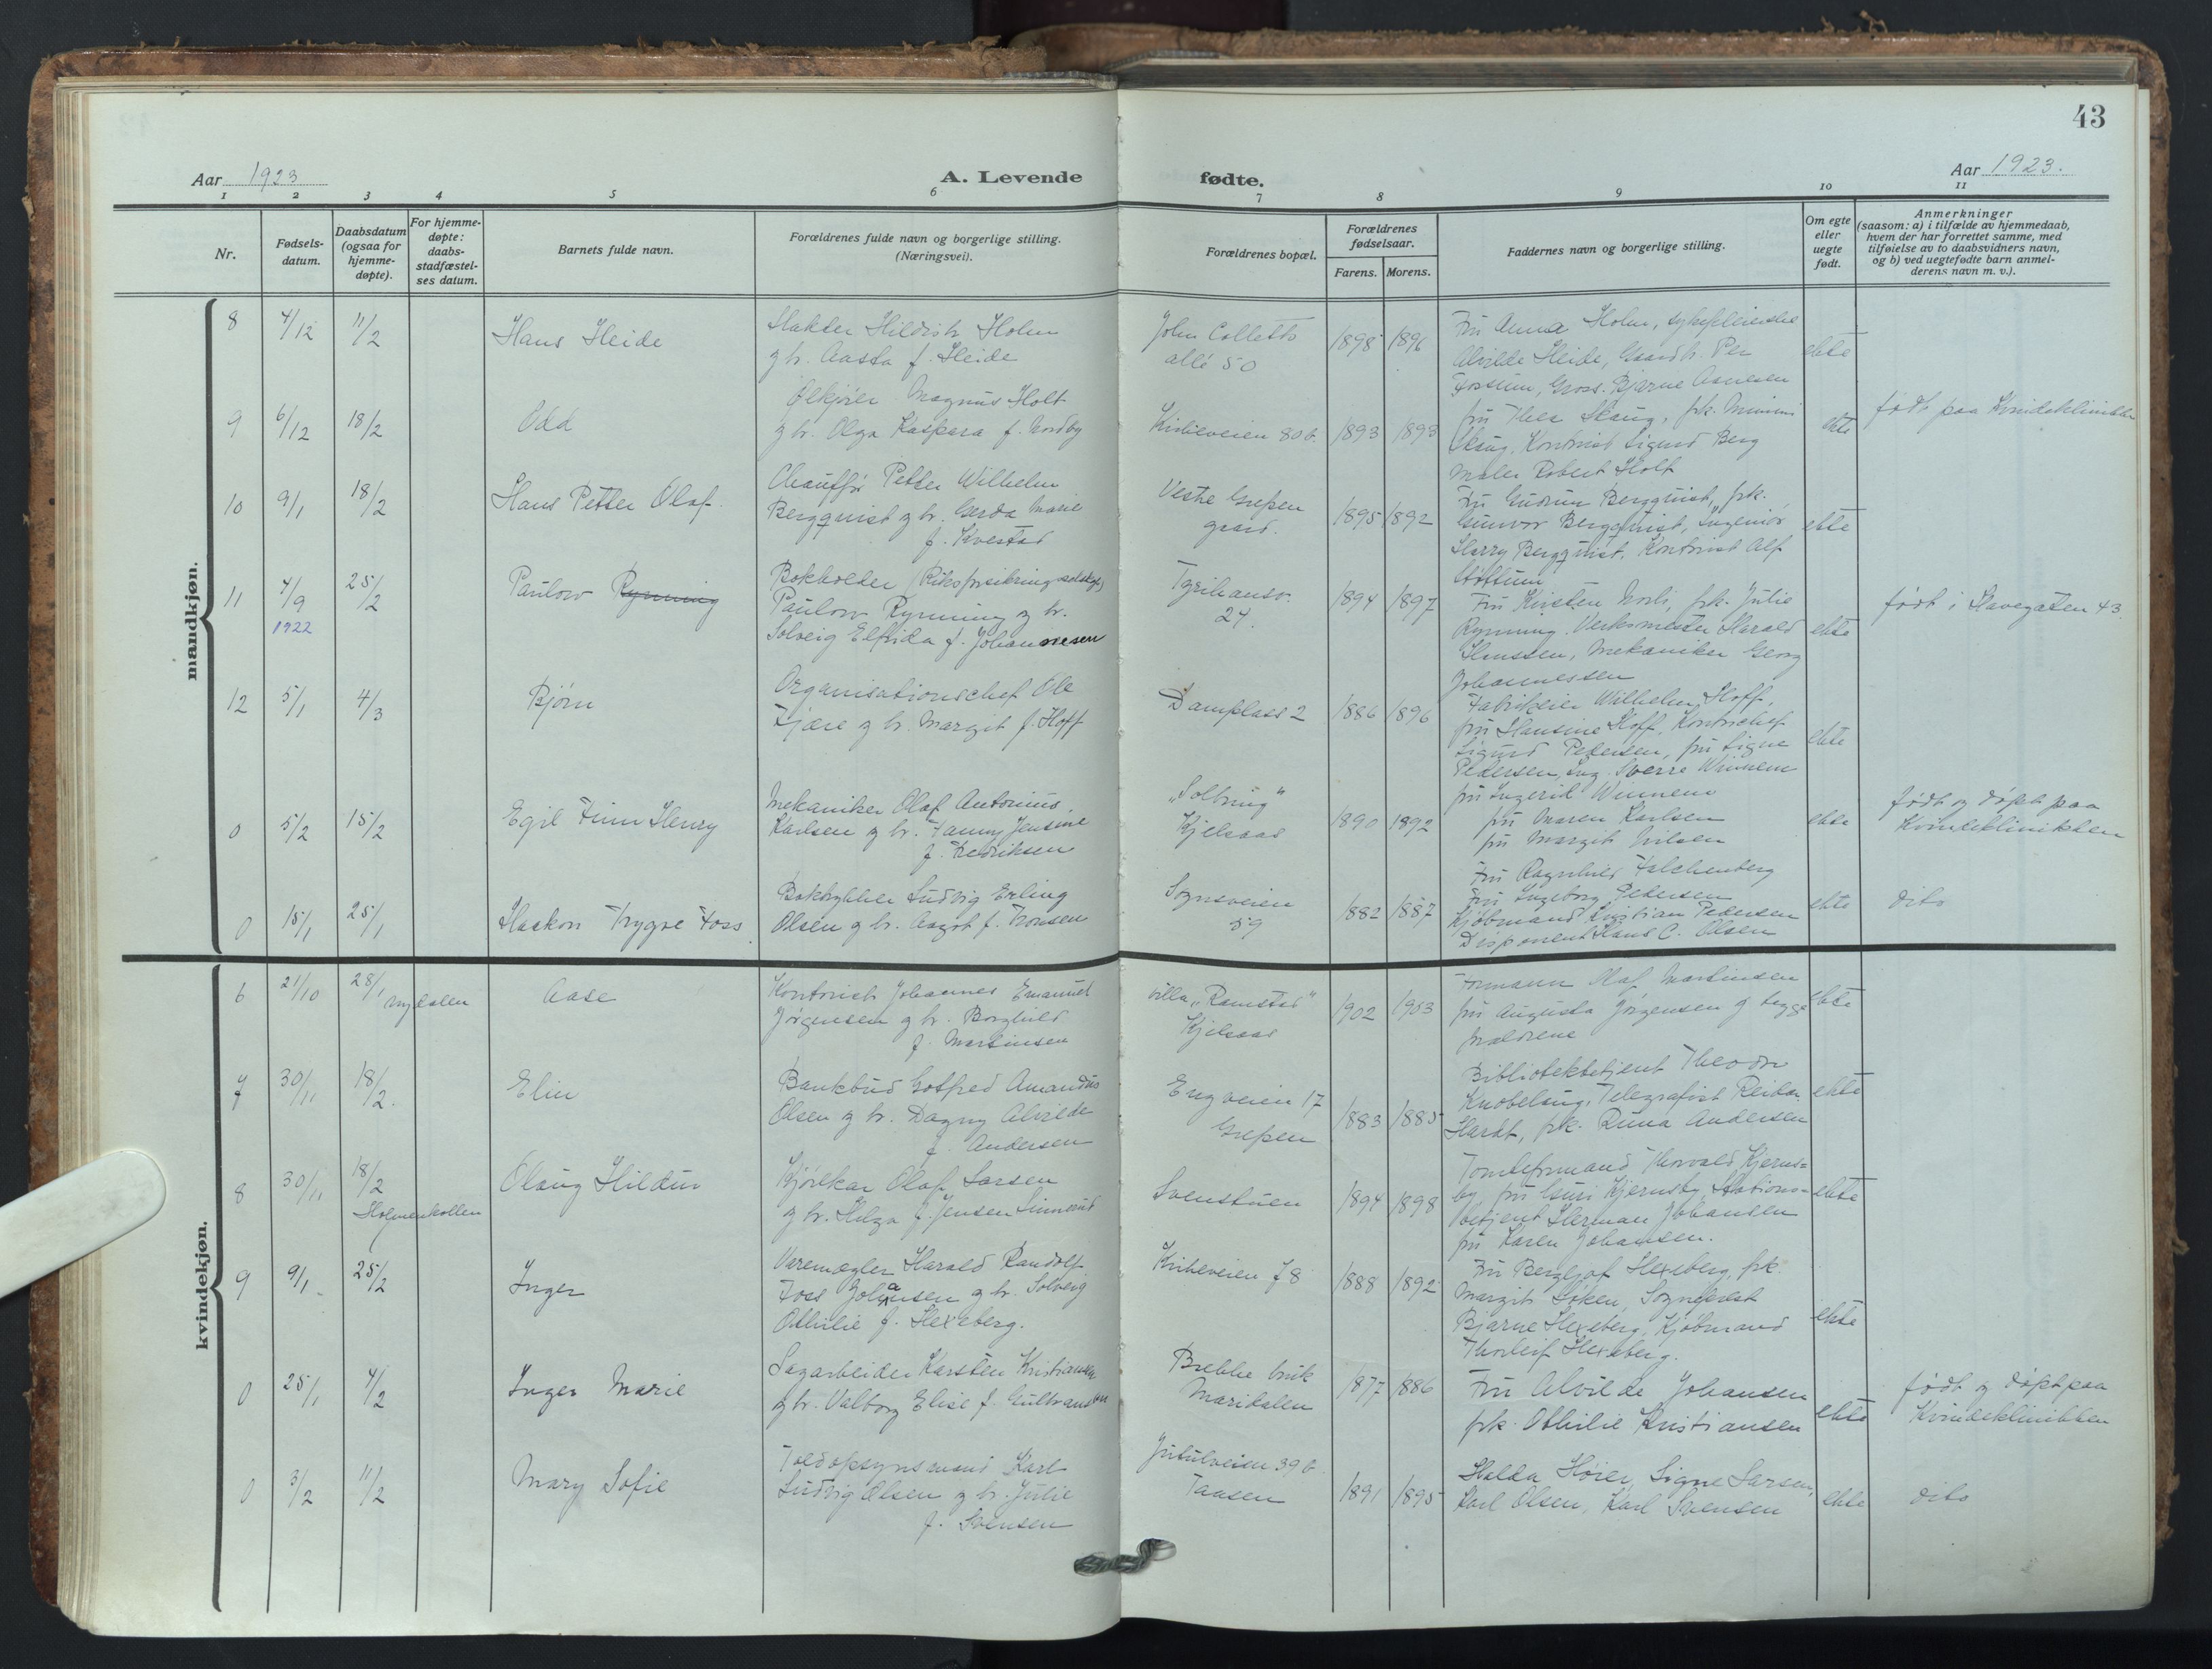 43
Aar 1923
A. Levende fødte.
Aar 1923.
1 2 3 4 5 6 7 8 9 10 11
Nr.
Fødsels-
datum.
Daabsdatum
(ogsaa for
hjemme-
døpte).
For hjemme-
døpte:
daabs-
stadfæstel-
ses datum.
Barnets fulde navn.
Forældrenes fulde navn og borgerlige stilling.
(Næringsvei).
Forældrenes bopæl.
Forældrenes
fødselsaar.
Farens. Morens.
Faddernes navn og borgerlige stilling.
Om egte
eller
uegte
født.
Anmerkninger
(saasom: a) i tilfælde av hjemmedaab,
hvem der har forrettet samme, med
tilføielse av to daabsvidners navn,
og b) ved uegtefødte barn anmel-
derens navn m. v.).
mandkjøn.
8 4/12 11/2
Hans Heide
Slakter Hildish Holm
g hr. Aasta f. Heide
John Colletts
allé 50
1898 1896
Fru Anna Holm, sykepleierske
Alvilde Heide, Gaardbr. Per
Fossum, Gross. Bjarne Aanesen
ekte
9 6/12 18/2
Odd
Ølkjører Magnus Holt
g hr. Olga Kaspara f. Nordby
Kirkeveien 80 b.
1893 1893
fru Thea Skaug, frk. Mimmi
Skaug, Kontorist Sigurd Berg
Maler Robert Holt
ekte
født paa Kvindeklinikken
10 9/1 18/2
Hans Petter Olaf
Chauffør Petter Wilhelm
Bergquist g hr. Gerda Marie
f. Kvestad
Vestre Grefsen
gaard.
1895 1892
Fru Gudrun Bergquist, frk.
Gunvor Bergquist, Ingeniør
Harry Bergquist, Kontorist Alf
Støttum
ekte
11 4/9 25/2
1922
Paulow Rynning
Bokholder (Riksforsikringsselskap)
Paulow Rynning g hr.
Solveig Elfrida f. Johannesen
Tyrihansv.
24.
1894 1897
Fru Kirsten Norli, frk. Julie
Rynning. Verksmester Harald
Hanssen, Mekaniker Georg
Johannessen
ekte
født i Stavegaten 43.
12 5/1 4/3
Bjørn
Organisationschef Ole
Fjære g hr. Margit f. Hoff
Damplass 2
1886 1896
Fabrikeier Wilhelm Hoff,
fru Hansine Hoff, Kontorchef
Sigurd Pedersen, fru Signe
Pedersen, Ing. Sverre Winnem
fru Ingerid Winnem
ekte
0 5/2 15/2
Egil Finn Henry
Mekaniker Olaf Antonius
Karlsen g hr. Fanny Jensine
f. Fredriksen
"Solbring"
Kjelsaas
1890 1892
fru Maren Karlsen
fru Margit Nilsen
ekte
født og døpt paa
Kvindeklinikken
0 15/1 25/1
Haakon Trygve Foss
Boktrykker Ludvig Erling
Olsen g hr. Aagot f. Tronsen
Sognsveien
59
1882 1887
Fru Ragnhild Falchenberg
Fru Ingeborg Pedersen
Kjøbmand Kristian Pedersen
Disponent Hans C. Olsen
ekte
dito
kvindekjøn.
6 21/10 28/1 Nydalen
Aase
Kontorist Johannes Emanuel
Jørgensen g hr. Borghild
f. Martinsen
villa "Ramstad"
Kjelsaas
1902 1903
Formann Olaf Martinsen
fru Augusta Jørgensen g begge
forældrene
ekte
7 30/11 18/2.
Elin
Bankbud Gotfred Amandus
Olsen g hr. Dagny Alvilde
f. Andersen
Engveien 17
Grefsen
1883 1885
Bibliotekbetjent Theodor
Knobelaug, Telegrafist Reidar
Hardt, frk. Runa Andersen
ekte
8 30/11 18/2
Holmenkollen
Olaug Hildur
Kjørekar Olaf Larsen
g hr. Helga f. Jensen Linnerud
Svenstuen
1894 1898
Tomteformand Thorvald Kjerns=
by, fru Guri Kjernsby, Stations=
betjent Herman Johansen
fru Karen Johansen.
ekte
9 9/1 25/2
Inger
Varemægler Harald Randolf
Foss Johansen g hr. Solveig
Othilie f. Hexeberg.
Kirkeveien 78
1888 1892
Fru Bergljot Hexeberg, frk.
Margit Løken, Sogneprest
Bjarne Hexeberg, Kjøbmand
Thorleif Hexeberg.
ekte
0 25/1 4/2
Inger Marie
Sagarbeider Karsten Kristiansen
g hr. Valborg Elise f. Gulbrandsen
Brekke bruk
Maridalen
1877 1886
Fru Alvilde Johansen
frk. Othilie Kristiansen
ekte
født og døpt paa
Kvindeklinikken
0 3/2 11/2
Mary Sofie
Toldopsynsmand Karl
Ludvig Olsen g hr. Julie
f. Svensen
Jutulveien 39 b
Taasen
1891 1895
Halda Høier, Signe Larsen,
Karl Olsen, Karl Svensen
ekte
dito